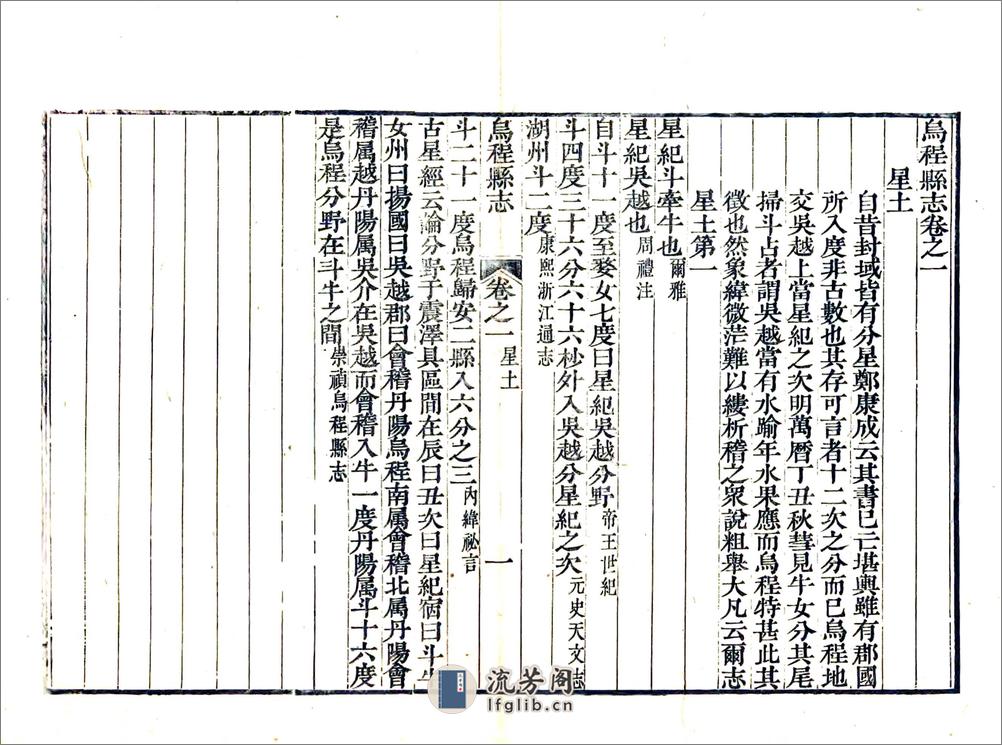 烏程縣志卷之一
星土
自昔封域皆有分星鄭康成云其書已亡堪輿雖有郡國
所入度非古數也其存可言者十二次之分而已烏程地
交吳越上當星紀之次明萬曆丁丑秋彗見牛女分其尾
掃斗占者謂吳越當有水踰年水果應而烏程特甚此其
徵也然象緯微茫難以縷析稽之衆說粗舉大凡云爾志
星土第一
星紀斗牽牛也爾雅
星紀吳越也周禮注
自斗十一度至婺女七度曰星紀吳越分野帝王世紀
斗四度三十六分六十六秒外入吳越分星紀之次元史天文志
湖州斗二度康熙浙江通志
烏程縣志 卷之一 星土 一
斗二十一度烏程歸安二縣入六分之三內緯祕言
古星經云論分野于震澤具區間在辰曰丑次曰星紀宿曰斗牛
女州曰揚國曰吳越郡曰會稽丹陽烏程南属會稽北属丹陽會
稽属越丹陽属吳介在吳越而會稽入牛一度丹陽属斗十六度
是烏程分野在斗牛之間崇禎烏程縣志
流芳阁
lfglib.cn